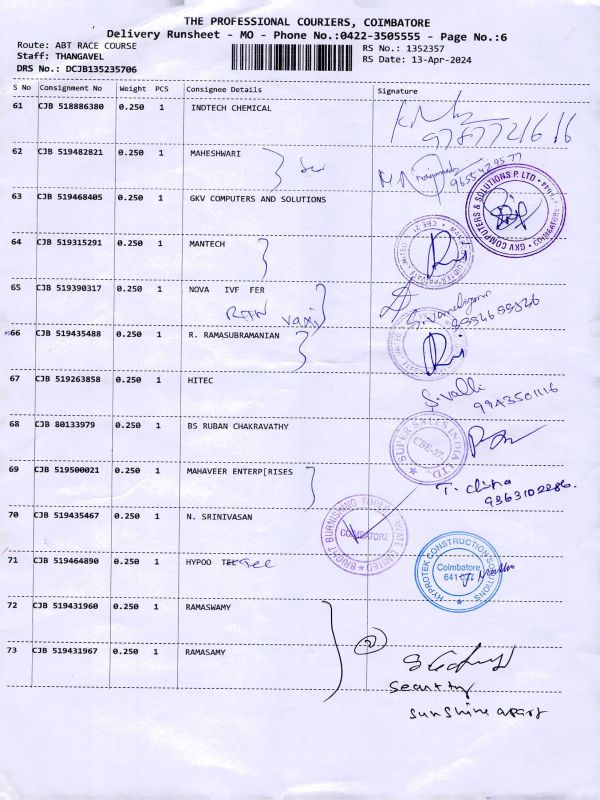 THE PROFESSIONAL COURIERS, COIMBATORE
Delivery Runsheet - MO - Phone No.:0422-3505555 - Page No.:6
Route: ABT RACE COURSE
Staff: THANGAVEL
DRS No.: DCJB135235706
RS No.: 1352357
RS Date: 13-Apr-2024
S No Consignment No Weight PCS Consignee Details Signature
61 CJB 518886380 0.250 1 INDTECH CHEMICAL
62 CJB 519482821 0.250 1 MAHESHWARI
9655429577
63 CJB 519468405 0.250 1 GKV COMPUTERS AND SOLUTIONS
GKV COMPUTERS & SOLUTIONS P. LTD COIMBATORE
64 CJB 519315291 0.250 1 MANTECH
65 CJB 519390317 0.250 1 NOVA IVF FER
66 CJB 519435488 0.250 1 R. RAMASUBRAMANIAN
67 CJB 519263858 0.250 1 HITEC
S. Valli
9943501116
68 CJB 80133979 0.250 1 BS RUBAN CHAKRAVATHY
SUPER SALES INDIA LTD. CBE-37.
69 CJB 519500021 0.250 1 MAHAVEER ENTERP[RISES
9363102286.
70 CJB 519435467 0.250 1 N. SRINIVASAN
BRIGHT BURNISHING TOOLS PRIVATE LIMITED COIMBATORE
71 CJB 519464890 0.250 1 HYPOO TEC Tee
HYPROTEK CONSTRUCTION SOLUTIONS
Coimbatore
641
72 CJB 519431960 0.250 1 RAMASWAMY
73 CJB 519431967 0.250 1 RAMASAMY
2
Security
Sunshine apart